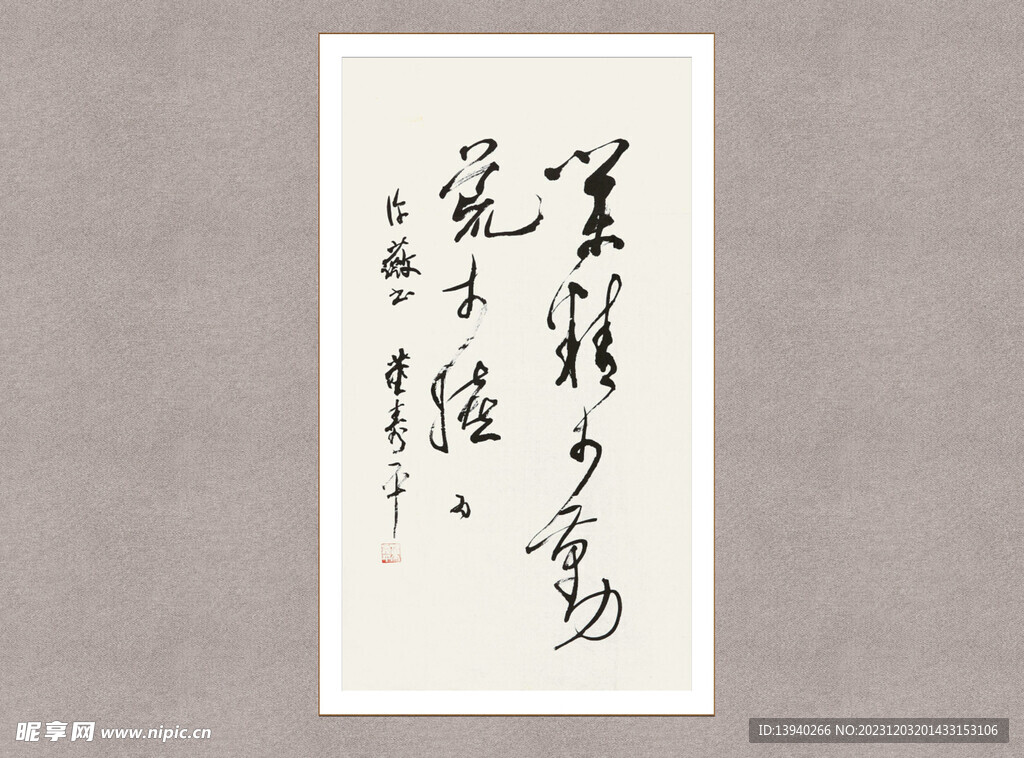 業精於勤
荒於嬉 为
薇书 董壽平
昵享网 www.nipic.cn
ID:13940266 NO:20231203201433153106